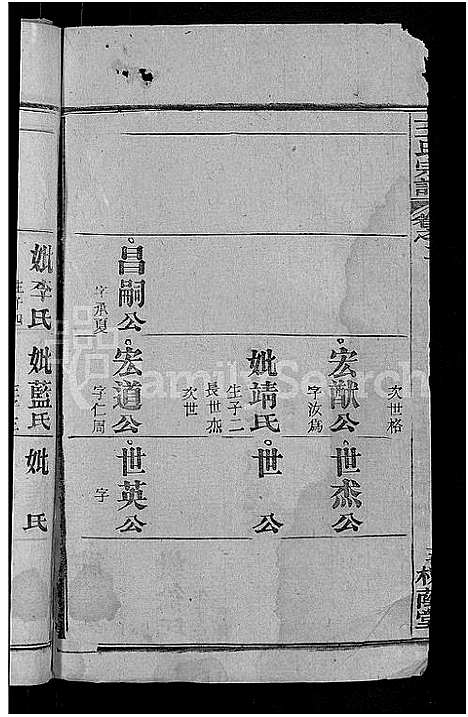 王氏宗譜
卷之
槐蔭堂
次世格
宏猷公
字汝為
世杰公
妣靖氏
生子二
長世杰
次世
世 公
昌嗣公
字承夏
宏道公
字仁周
世英公
字
妣李氏
生子四
妣藍氏
妣 氏
FamilySearch